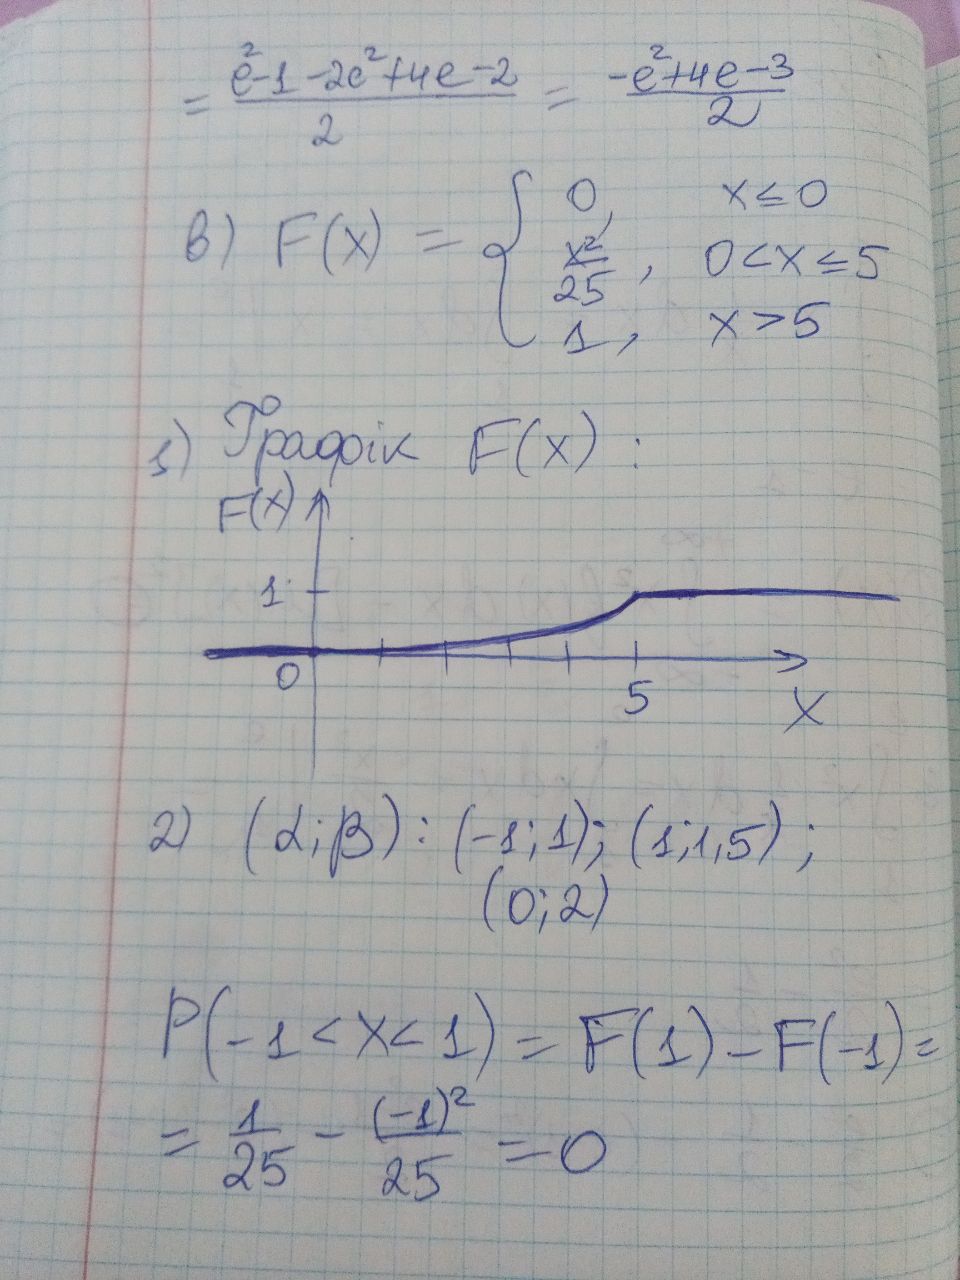 = (e²-1-2e²+4e-2)/2 = (-e²+4e-3)/2
в) F(x) = { 0, x≤0
x²/25, 0<x≤5
1, x>5
1) Графік F(x):
F(x)
1
0 5 x
2) (α;β): (-1;1); (1;1,5);
(0;2)
P(-1<X<1) = F(1) - F(-1) =
= 1/25 - (-1)²/25 = 0